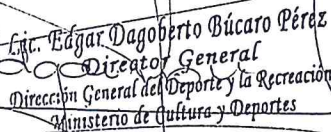 Lic. Edgar Dagoberto Búcaro Pérez
Director General
Dirección General del Deporte y la Recreación
Ministerio de Cultura y Deportes